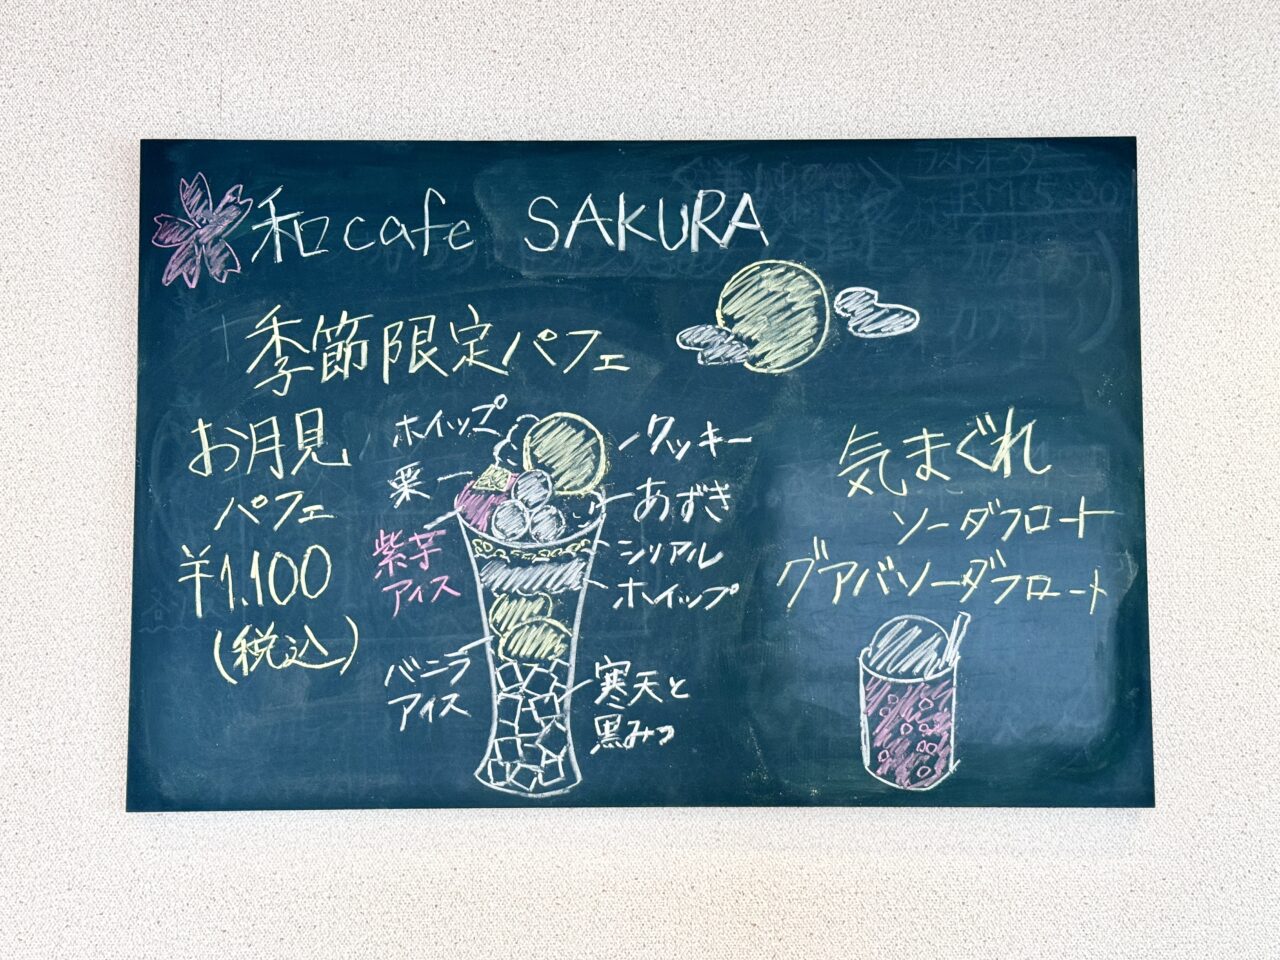 和cafe SAKURA
季節限定パフェ
お月見
パフェ
¥1.100
(税込)
ホイップ
栗
紫芋
アイス
バニラ
アイス
クッキー
あずき
シリアル
ホイップ
寒天と
黒みつ
気まぐれ
ソーダフロート
グアバソーダフロート